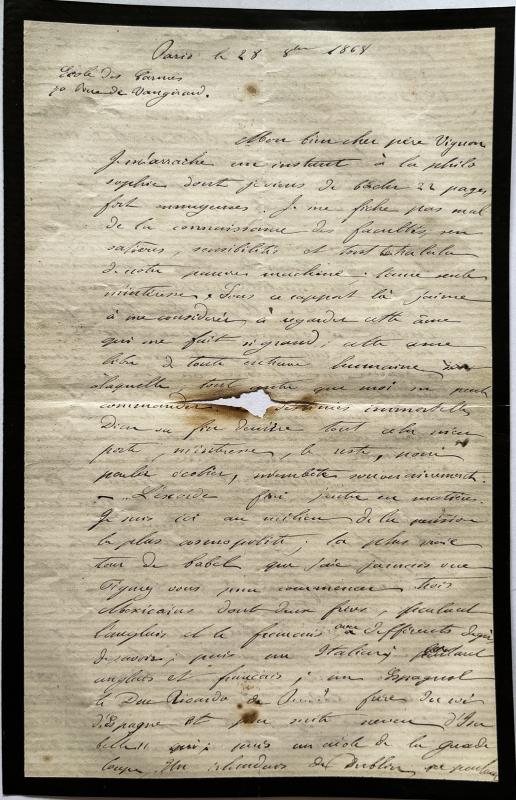 Paris le 28 8bre 1868
École des Carmes
70 Rue de Vaugirard.
Mon bien cher père Vignon
Je m'arrache un instant à la philo
sophie dont je viens de bâcler 22 pages
fort ennuyeuses. Je me fiche pas mal
de la connaissance des facultés, sen
sations, sensibilités et tout le tralala
de notre pauvre machine; l'âme seule
m'intéresse. Sous ce rapport là j'aime
à me considérer à regarder cette âme
qui me fait si grand; cette âme
libre de toute entrave humaine
à laquelle tout autre que moi ne peut
commander destinées immortelles
Dieu sa fin dernière tout cela
porte, m'intéresse, le reste, pour
parler écolier, m'embête souverainement.
L'exorde fini j'entre en matière.
Je suis ici au milieu de la pension
la plus cosmopolite; la plus vraie
tour de babel que j'aie jamais vue
Figurez vous pour commencer trois
Mexicains dont deux frères, parlant
l'anglais et le français avec différents degrés
de savoir; puis un Italien parlant
anglais et français; un Espagnol
le Duc Ricardo de frère du roi
d'Espagne et par suite neveu d'Isa
belle II; puis un créole de la guade
loupe, Un irlandais de Dublin ne parlant